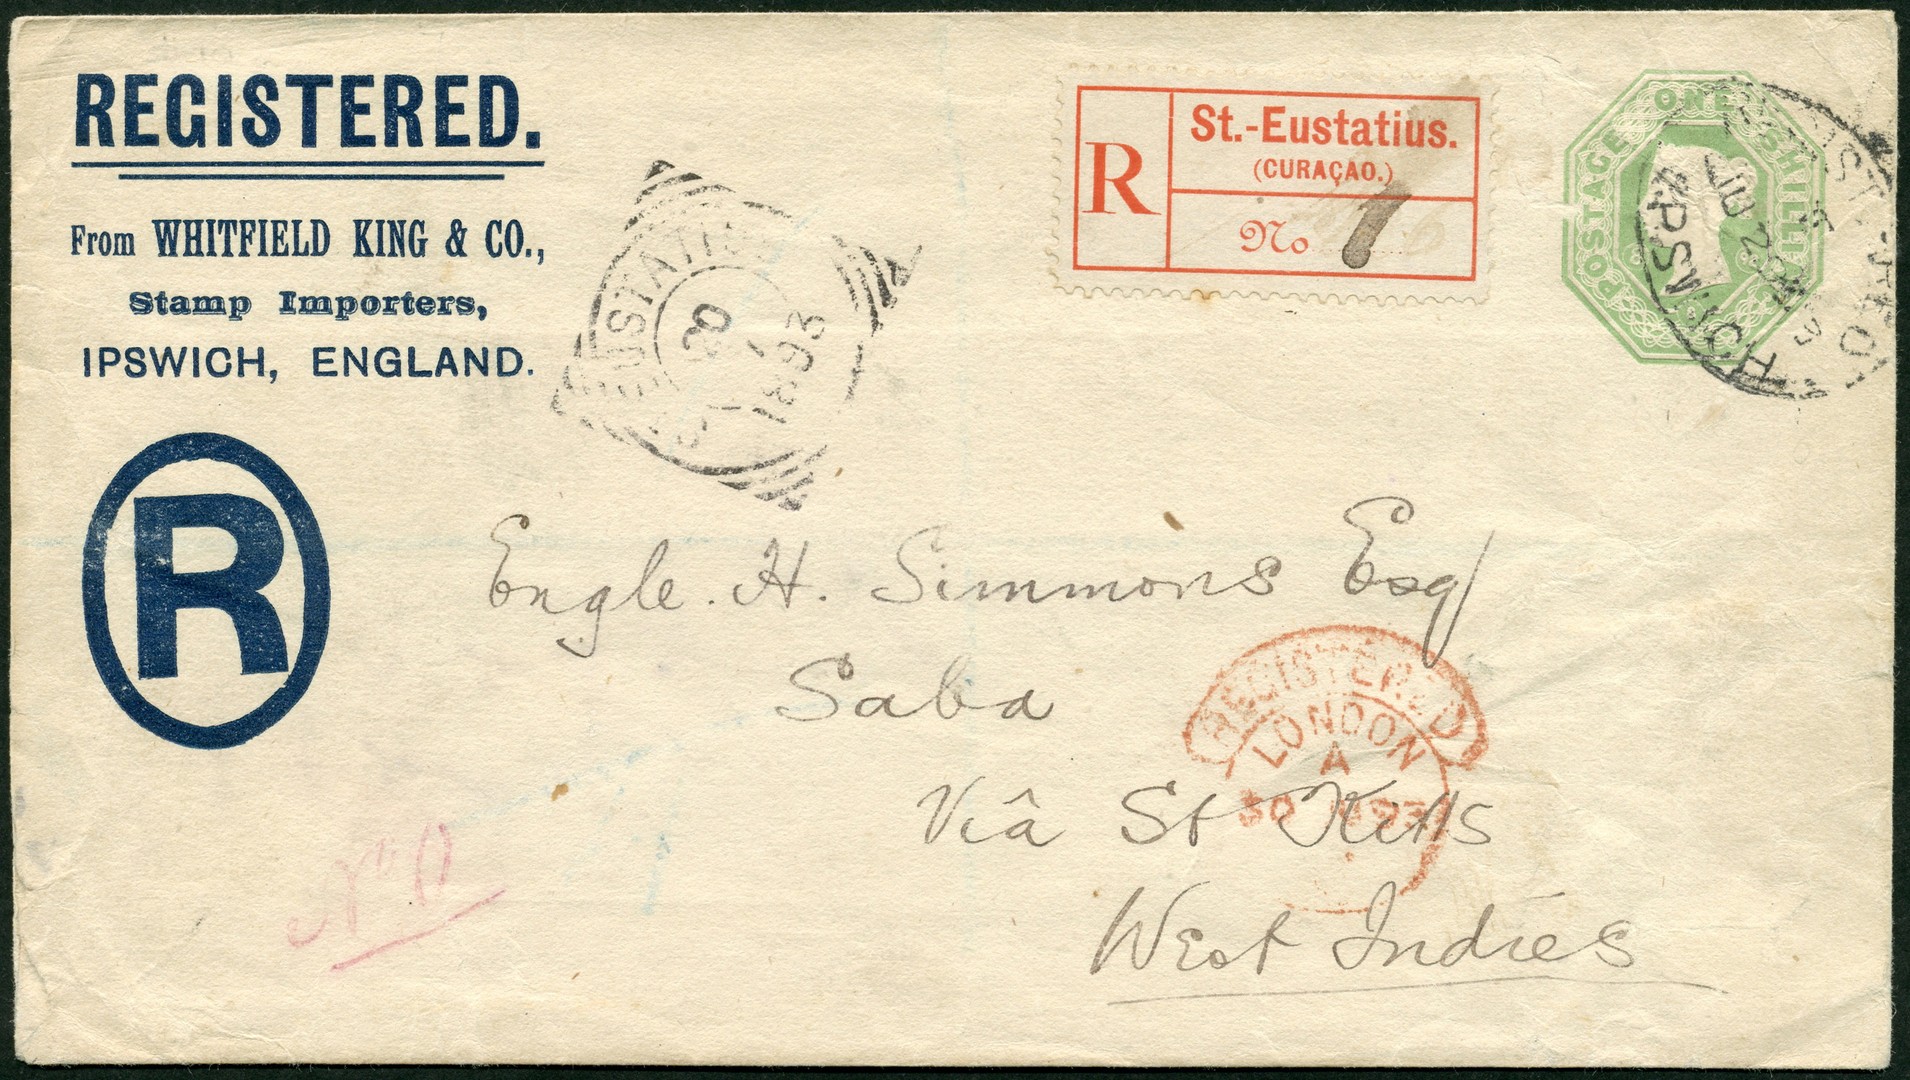 REGISTERED.
From WHITFIELD KING & CO.,
Stamp Importers,
IPSWICH, ENGLAND.
R
R
St.-Eustatius.
(CURAÇAO.)
No 1
POSTAGE ONE SHILLING
REGISTERED
IPSWICH
EUSTATIUS
20
1893
Engle. H. Simmons Esq
Saba
Viâ St Kitts
West Indies
REGISTERED
LONDON
A
30